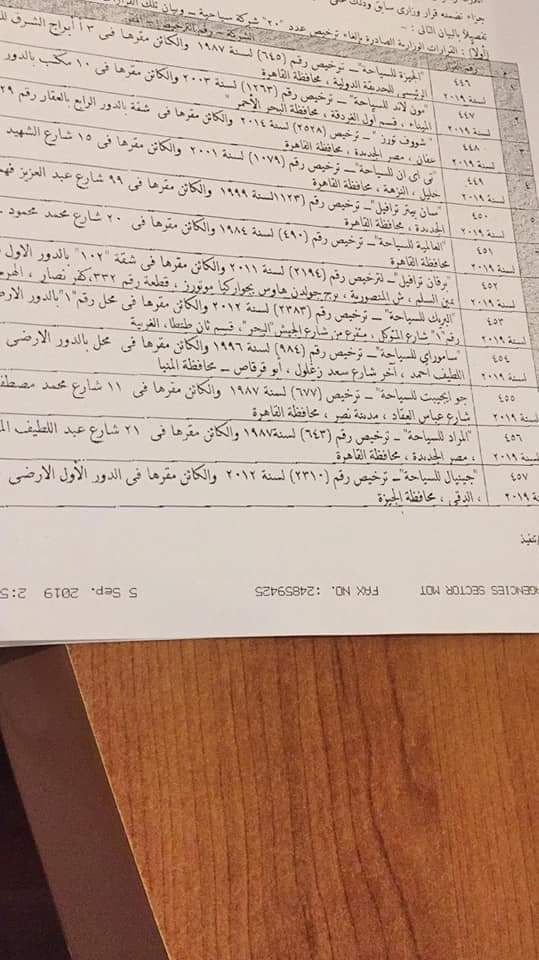 جراء تضمنه قرار وزارى سابق وذلك على
تفصيلا بالبيان التالى : ــ
(أولاً) : القرارات الوزارية الصادرة بإلغاء ترخيص عدد "٢٠" شركة سياحية ــ وبيان تلك القرارات
الشركة – رقم الترخيص
٤٤٦ لسنة ٢٠١٩ "الجيزة للسياحة" ــ ترخيص رقم (٦٤٥) لسنة ١٩٨٧ والكائن مقرها فى ٣ أ أبراج الشرق
الرئيسى للحديقة الدولية ، محافظة القاهرة
٤٤٧ لسنة ٢٠١٩ "مون لاند للسياحة" ــ ترخيص رقم (١٢٦٣) لسنة ٢٠٠٣ والكائن مقرها فى ١٠ مكتب بالدور
الميناء ، قسم أول الغردقة ، محافظة البحر الأحمر "
٤٤٨ لسنة ٢٠١٩ "شووف تورز" ــ ترخيص رقم (٢٥٢٨) لسنة ٢٠١٤ والكائن مقرها فى شقة بالدور الرابع بالعقار رقم ٢٩
عفان ، مصر الجديدة ، محافظة القاهرة
٤٤٩ لسنة ٢٠١٩ "تى أى ان للسياحة" ــ ترخيص رقم (١٠٧٩) لسنة ٢٠٠١ والكائن مقرها فى ١٥ شارع الشهيد
خليل ، النزهة ، محافظة القاهرة
٤٥٠ لسنة ٢٠١٩ "سان بيتر ترافيل" ــ ترخيص رقم (١٢٣) لسنة ١٩٩٩ والكائن مقرها فى ٩٩ شارع عبد العزيز فهمى
الجديدة ، محافظة القاهرة
٤٥١ لسنة ٢٠١٩ "العالمية للسياحة" ــ ترخيص رقم (٤٩٠) لسنة ١٩٨٤ والكائن مقرها فى ٢٠ شارع محمد محمود
محافظة القاهرة
٤٥٢ لسنة ٢٠١٩ "برفان ترافيل" ــ ترخيص رقم (٢١٩٤) لسنة ٢٠١١ والكائن مقرها فى شقة "١٠٢" بالدور الاول
يمين السلم ، ش المنصورية ، برج جولدن هاوس بجوار كيا موتورز ، قطعة رقم ٣٣٢، كفر نصار ، الهرم
٤٥٣ لسنة ٢٠١٩ "البريك للسياحة" ــ ترخيص رقم (٢٣٨٣) لسنة ٢٠١٢ والكائن مقرها فى محل رقم "١" بالدور الارضى
رقم "١" شارع المتوكل ، متفرع من شارع الجيش "البحر" ، قسم ثان طنطا، الغربية
٤٥٤ لسنة ٢٠١٩ "ساموراي للسياحة" ــ ترخيص رقم (٩٨٤) لسنة ١٩٩٦ والكائن مقرها فى محل بالدور الارضى
اللطيف احمد ، آخر شارع سعد زغلول ، أبو قرقاص ــ محافظة المنيا
٤٥٥ لسنة ٢٠١٩ جو ايجيبت للسياحة" ــ ترخيص رقم (٦٧٧) لسنة ١٩٨٧ والكائن مقرها فى ١١ شارع محمد مصطفى
شارع عباس العقاد ، مدينة نصر ، محافظة القاهرة
٤٥٦ لسنة ٢٠١٩ "المراد للسياحة" ــ ترخيص رقم (٦٤٣) لسنة ١٩٨٧ والكائن مقرها فى ٢١ شارع عبد اللطيف
، مصر الجديدة ، محافظة القاهرة
٤٥٧ لسنة ٢٠١٩ "جينيال للسياحة" ــ ترخيص رقم (٢٣١٠) لسنة ٢٠١٢ والكائن مقرها فى الدور الأول الارضى
، الدقى ، محافظة الجيزة
AGENCIES SECTOR MOT FAX NO. :24859425 5 Sep. 2019 2:5